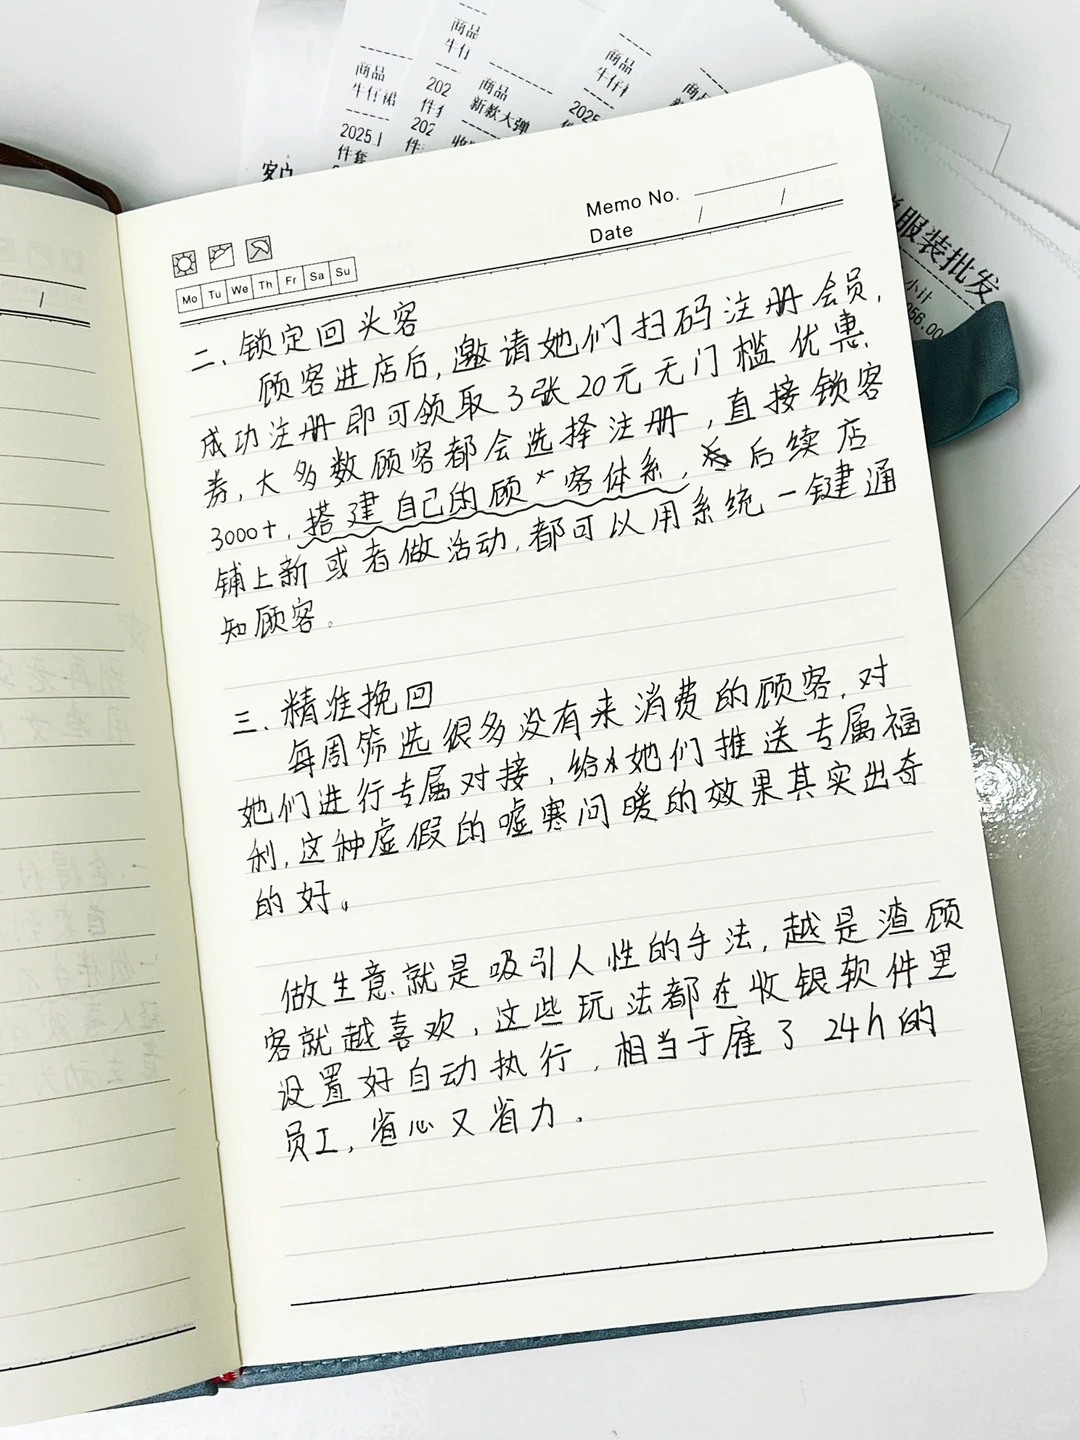 商品
牛仔
商品
牛仔裙
2025.1
件套
202
件
202
商品
新款大弹
商品
牛仔
2025
客户
商品
服装批发
小计
Memo No.
Date / /
Mo Tu We Th Fr Sa Su
二、锁定回头客
顾客进店后,邀请她们扫码注册会员,
成功注册即可领取3张20元无门槛优惠
券,大多数顾客都会选择注册,直接锁客
3000+,搭建自己的顾客体系,后续店
铺上新或者做活动,都可以用系统一键通
知顾客。
三、精准挽回
每周筛选很多没有来消费的顾客,对
她们进行专属对接,给她们推送专属福
利,这种虚假的嘘寒问暖的效果其实出奇
的好。
做生意就是吸引人性的手法,越是渣顾
客就越喜欢,这些玩法都在收银软件里
设置好自动执行,相当于雇了24h的
员工,省心又省力。